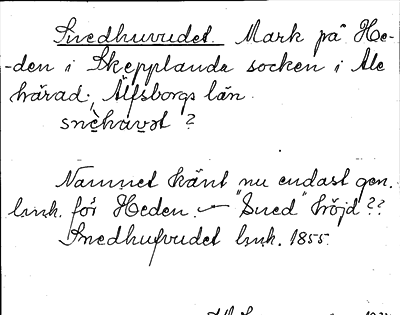 Snedhuvudet. Mark på He-
-den i Skepplanda socken i Ale
härad, Älfsborgs län.
snèhàvət ?
Namnet känt nu endast gen.
lmk. för Heden. — "Sned" höjd??
Snedhufvudet lmk. 1855.